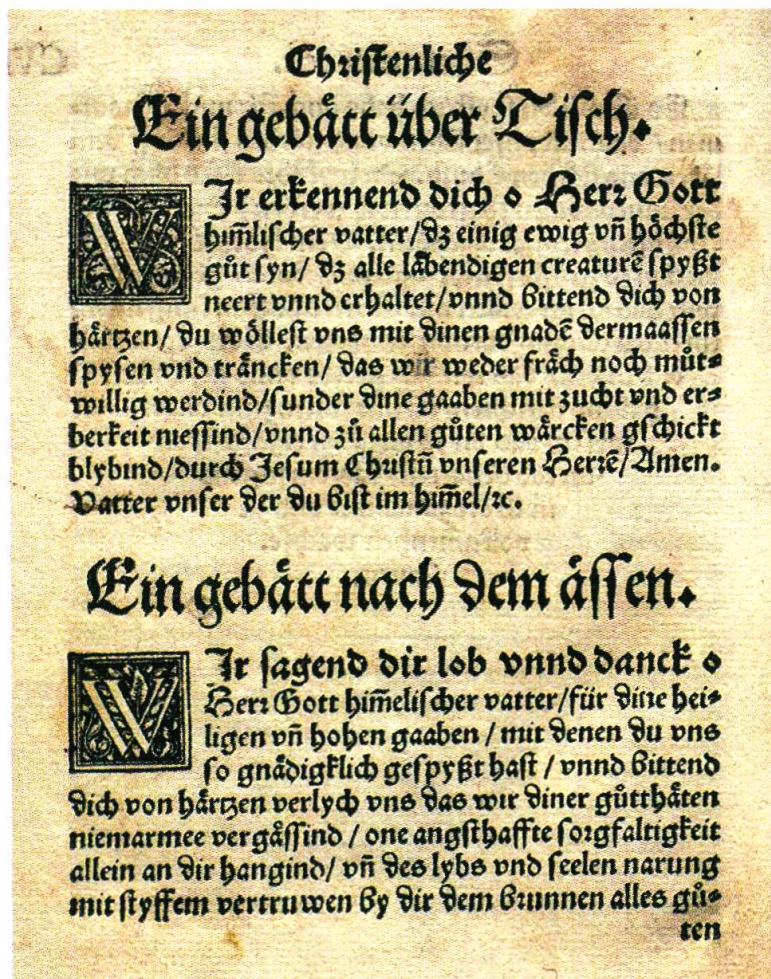 Christenliche
Ein gebätt über Tisch.
WIr erkennend dich o Herr Gott
him̃lischer vatter/dz einig ewig vñ höchste
gůt syn/ dz alle läbendigen creaturẽ spyßt
neert vnnd erhaltet/vnnd bittend dich von
härtzen/ du wöllest vns mit dinen gnadẽ dermaassen
spysen vnd träncken/ das wir weder fräch noch můt⸗
willig werdind/sunder dine gaaben mit zucht vnd er⸗
berkeit niessind/vnnd zů allen gůten wärcken gschickt
blybind/durch Jesum Christũ vnseren Herrẽ/Amen.
Vatter vnser der du bist im him̃el/ꝛc.
Ein gebätt nach dem ässen.
WIr sagend dir lob vnnd danck o
Herr Gott him̃elischer vatter/für dine hei⸗
ligen vñ hohen gaaben / mit denen du vns
so gnädigklich gespyßt hast / vnnd bittend
dich von härtzen verlych vns das wir diner gůtthäten
niemarmee vergässind / one angsthaffte sorgfaltigkeit
allein an dir hangind/ vñ des lybs vnd seelen narung
mit styffem vertruwen by dir dem brunnen alles gů⸗
ten